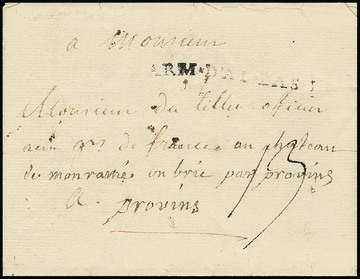 a Monsieur
ARM. D'ALSAS
Monsieur du tillet officier
aux de france au chateau
de monramé in brie par provins
A provins
13